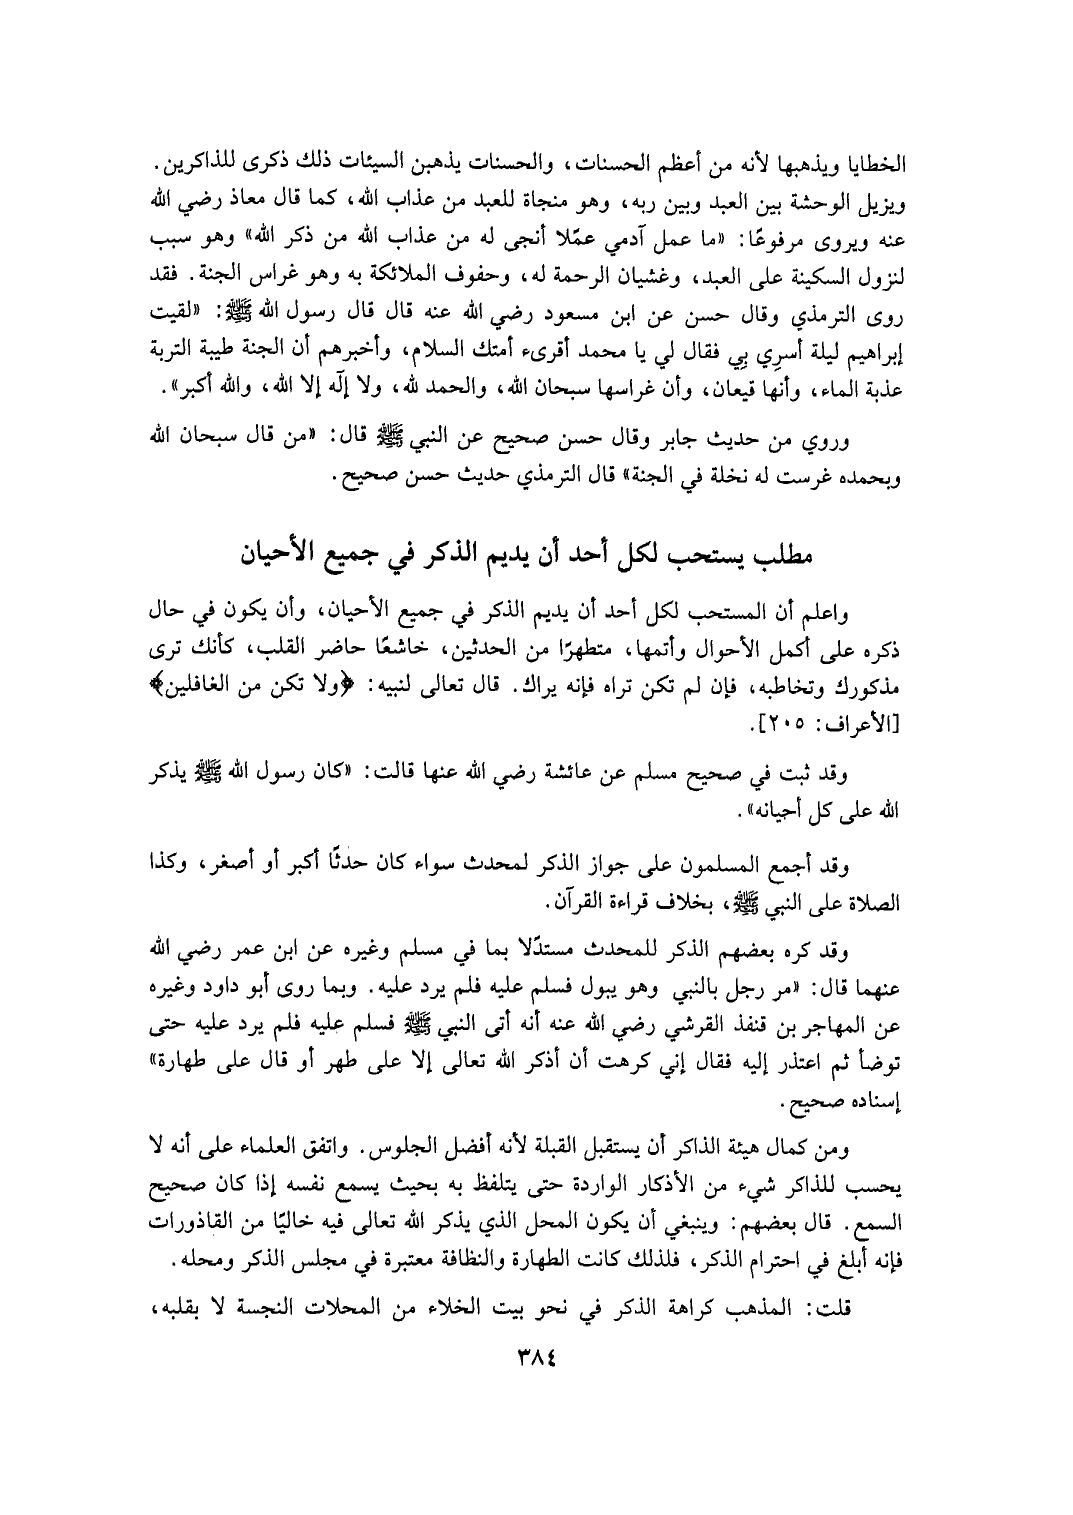 الخطايا ويذهبها لأنه من أعظم الحسنات، والحسنات يذهبن السيئات ذلك ذكرى للذاكرين.
ويزيل الوحشة بين العبد وبين ربه، وهو منجاة للعبد من عذاب الله، كما قال معاذ رضي الله
عنه ويروى مرفوعًا: «ما عمل آدمي عمًلا أنجى له من عذاب الله من ذكر الله» وهو سبب
لنزول السكينة على العبد، وغشيان الرحمة له، وحفوف الملائكة به وهو غراس الجنة. فقد
روى الترمذي وقال حسن عن ابن مسعود رضي الله عنه قال قال رسول الله ﷺ: «لقيت
إبراهيم ليلة أسرِي بِي فقال لي يا محمد أقرىء أمتك السلام، وأخبرهم أن الجنة طيبة التربة
عذبة الماء، وأنها قيعان، وأن غراسها سبحان الله، والحمد لله، ولا إلٓه إلا الله، والله أكبر».
وروي من حديث جابر وقال حسن صحيح عن النبي ﷺ قال: «من قال سبحان الله
وبحمده غرست له نخلة في الجنة» قال الترمذي حديث حسن صحيح.
مطلب يستحب لكل أحد أن يديم الذكر في جميع الأحيان
واعلم أن المستحب لكل أحد أن يديم الذكر في جميع الأحيان، وأن يكون في حال
ذكره على أكمل الأحوال وأتمها، متطهرًا من الحدثين، خاشعًا حاضر القلب، كأنك ترى
مذكورك وتخاطبه، فإن لم تكن تراه فإنه يراك. قال تعالى لنبيه: ﴿ولا تكن من الغافلين﴾
[الأعراف: ٢٠٥].
وقد ثبت في صحيح مسلم عن عائشة رضي الله عنها قالت: «كان رسول الله ﷺ يذكر
الله على كل أحيانه».
وقد أجمع المسلمون على جواز الذكر لمحدث سواء كان حدثًا أكبر أو أصغر، وكذا
الصلاة على النبي ﷺ، بخلاف قراءة القرآن.
وقد كره بعضهم الذكر للمحدث مستدًلا بما في مسلم وغيره عن ابن عمر رضي الله
عنهما قال: «مر رجل بالنبي وهو يبول فسلم عليه فلم يرد عليه. وبما روى أبو داود وغيره
عن المهاجر بن قنفذ القرشي رضي الله عنه أنه أتى النبي ﷺ فسلم عليه فلم يرد عليه حتى
توضأ ثم اعتذر إليه فقال إني كرهت أن أذكر الله تعالى إلا على طهر أو قال على طهارة»
إسناده صحيح.
ومن كمال هيئة الذاكر أن يستقبل القبلة لأنه أفضل الجلوس. واتفق العلماء على أنه لا
يحسب للذاكر شيء من الأذكار الواردة حتى يتلفظ به بحيث يسمع نفسه إذا كان صحيح
السمع. قال بعضهم: وينبغي أن يكون المحل الذي يذكر الله تعالى فيه خاليًا من القاذورات
فإنه أبلغ في احترام الذكر، فلذلك كانت الطهارة والنظافة معتبرة في مجلس الذكر ومحله.
قلت: المذهب كراهة الذكر في نحو بيت الخلاء من المحلات النجسة لا بقلبه،
٣٨٤